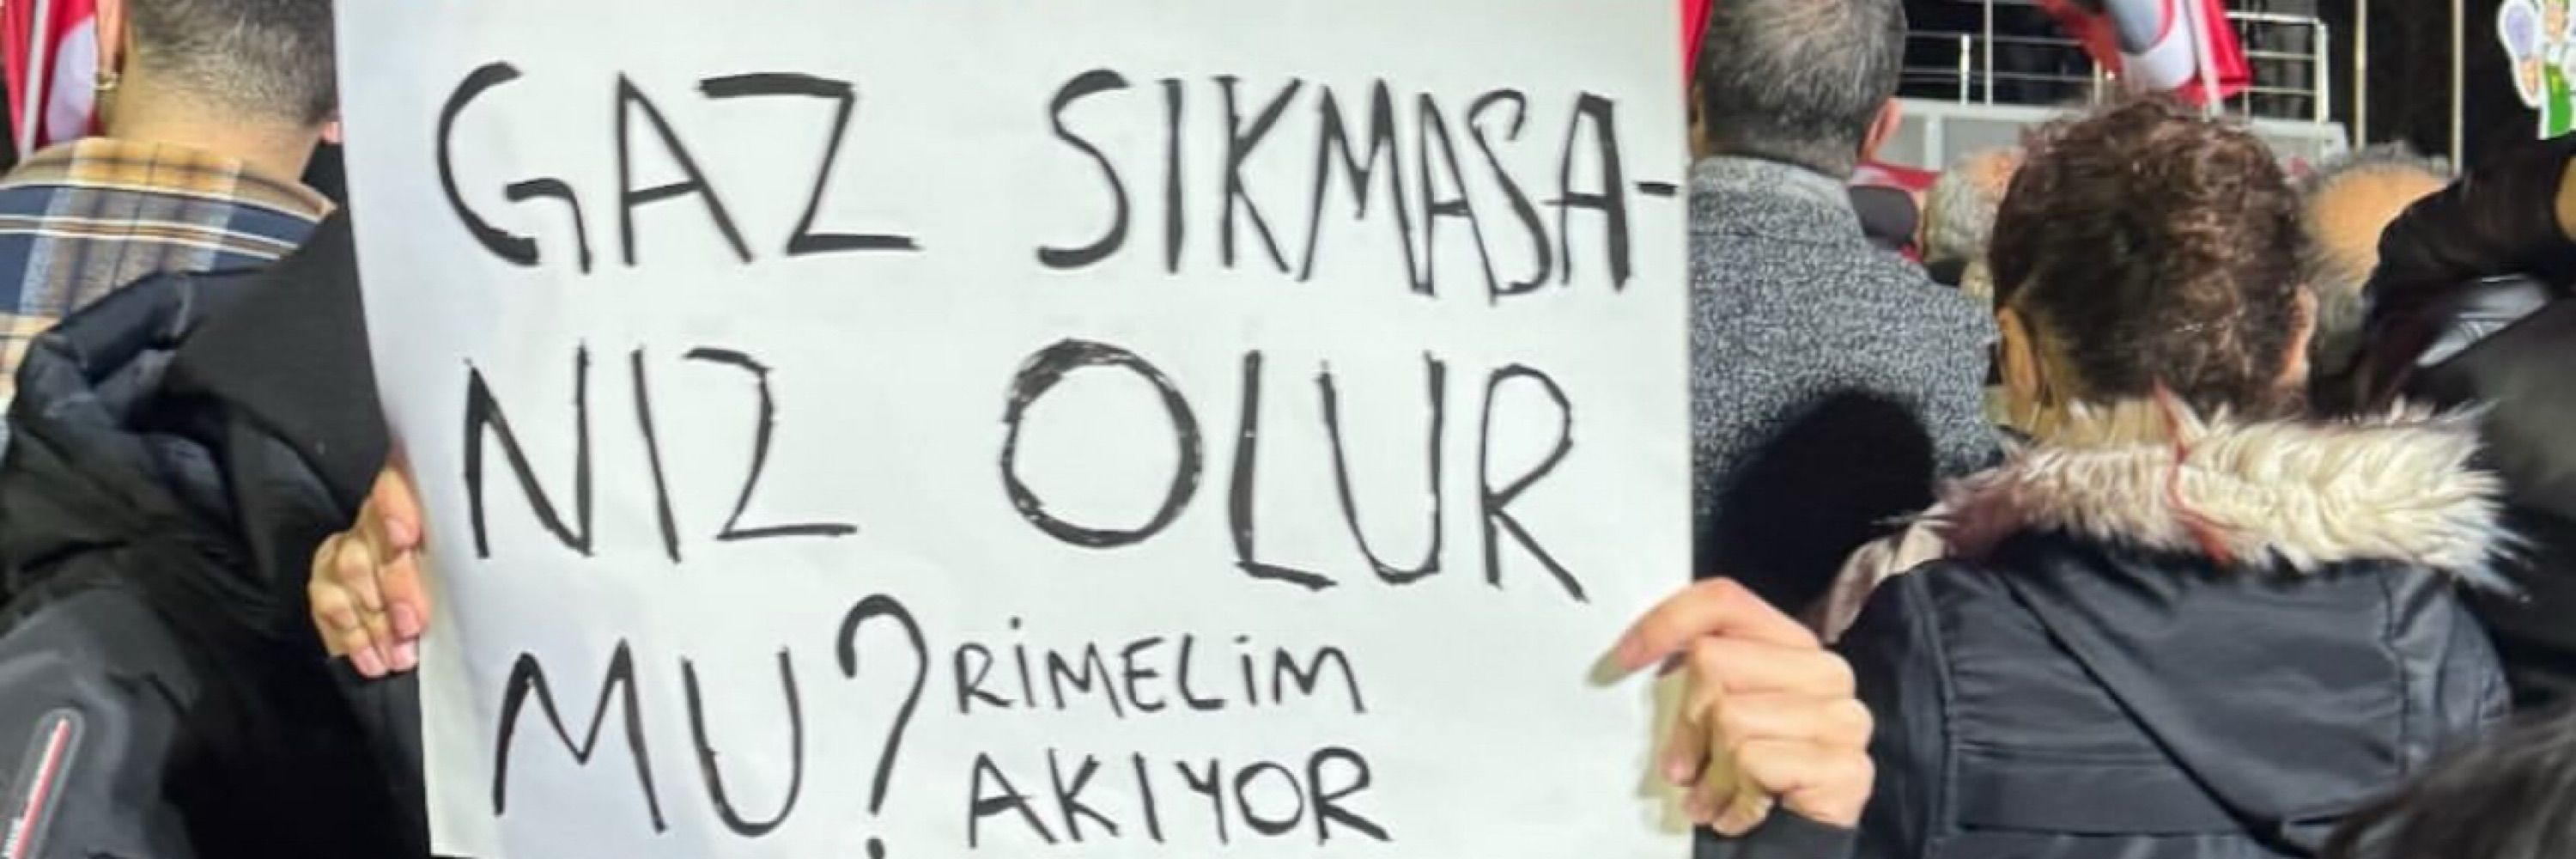 GAZ SIKMASA-
NIZ OLUR
MU? RİMELİM
AKIYOR